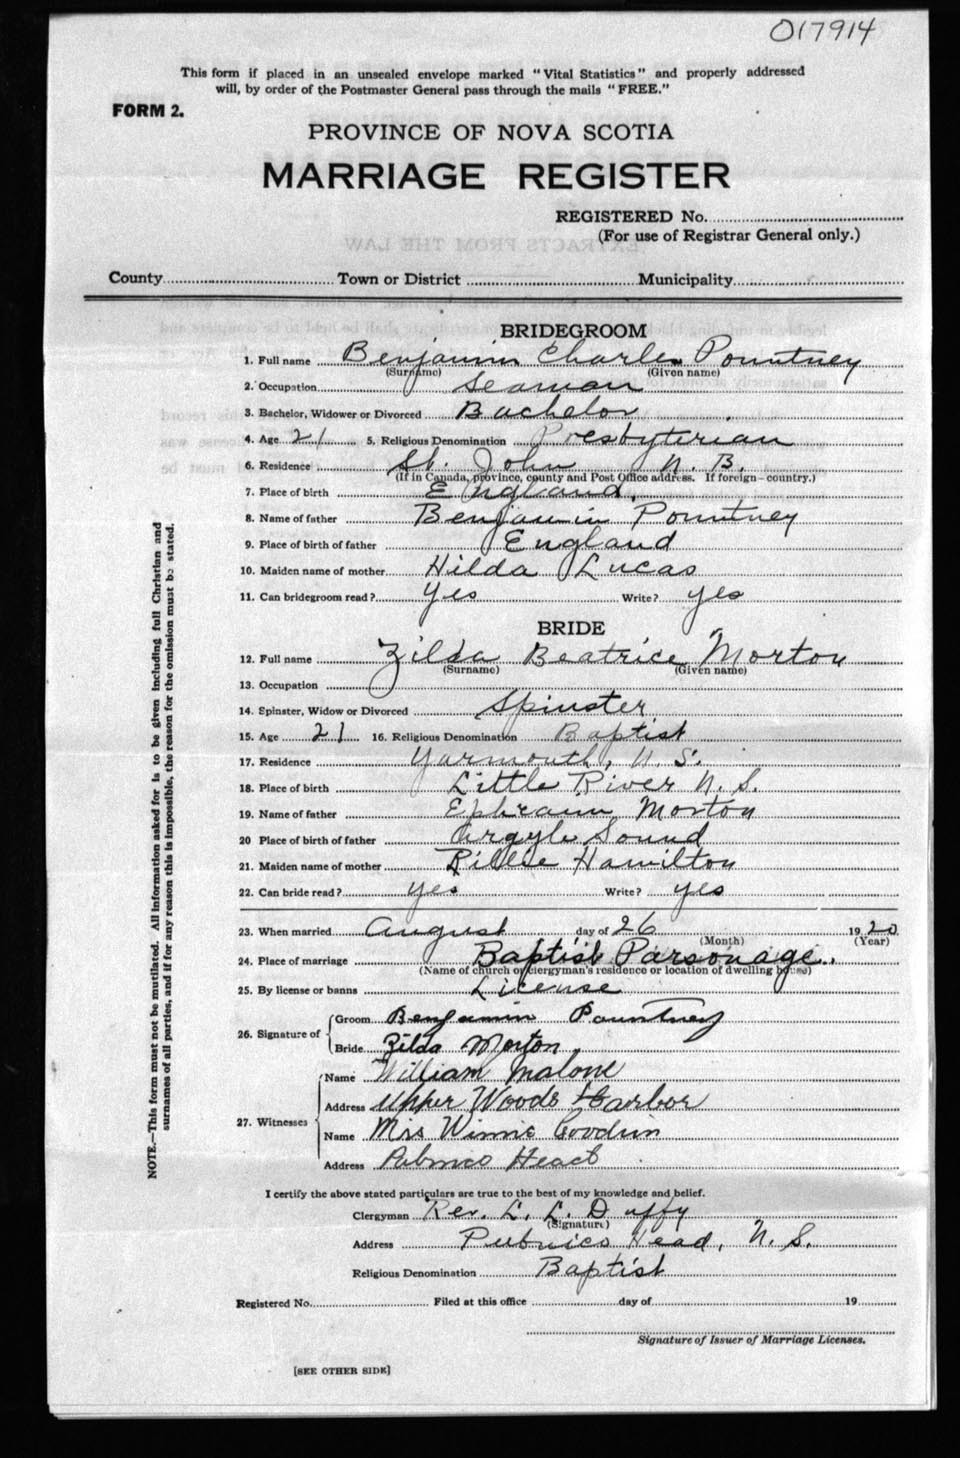 017914
This form if placed in an unsealed envelope marked "Vital Statistics" and properly addressed
will, by order of the Postmaster General pass through the mails "FREE."
FORM 2.
PROVINCE OF NOVA SCOTIA
MARRIAGE REGISTER
REGISTERED No.
(For use of Registrar General only.)
EXTRACTS FROM THE LAW
County Town or District Municipality
BRIDEGROOM
1. Full name Benjamin Charles Pountney
(Surname) (Given name)
2. Occupation Seaman
3. Bachelor, Widower or Divorced Bachelor
4. Age 21 5. Religious Denomination Presbyterian
6. Residence St. John N. B.
(If in Canada, province, county and Post Office address. If foreign—country.)
7. Place of birth England.
8. Name of father Benjamin Pountney
9. Place of birth of father England
10. Maiden name of mother Hilda Lucas
11. Can bridegroom read? Yes Write? yes
BRIDE
12. Full name Zilda Beatrice Morton
(Surname) (Given name)
13. Occupation
14. Spinster, Widow or Divorced Spinster
15. Age 21 16. Religious Denomination Baptist
17. Residence Yarmouth, N. S.
18. Place of birth Little River N. S.
19. Name of father Ephraim Morton
20 Place of birth of father Argyle Sound
21. Maiden name of mother Hamilton
22. Can bride read? yes Write? yes
23. When married August day of 26 1920
(Month) (Year)
24. Place of marriage Baptist Parsonage.
(Name of church or clergyman's residence or location of dwelling house)
25. By license or banns License
26. Signature of Groom Benjamin Pountney
Bride Zilda Morton
27. Witnesses Name William Malone
Address Upper Woods Harbor
Name Mrs Winnie Goodwin
Address Pubnico Head
I certify the above stated particulars are true to the best of my knowledge and belief.
Clergyman Rev. L. L. Duffy
(Signature)
Address Pubnico Head, N. S.
Religious Denomination Baptist
Registered No. Filed at this office day of 19
Signature of Issuer of Marriage Licenses.
[SEE OTHER SIDE]
NOTE.—This form must not be mutilated. All information asked for is to be given including full Christian and
surnames of all parties, and if for any reason this is impossible, the reason for the omission must be stated.